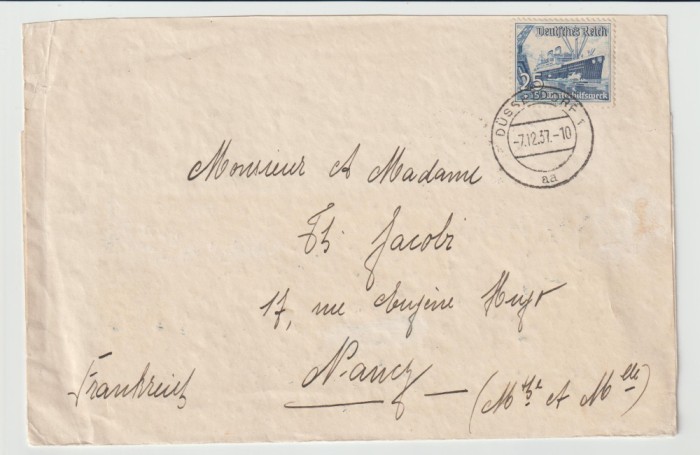 Deutsches Reich
25
Winterhilfswerk
DÜSSELDORF 1
-7.12.37.-10
aa
Monsieur et Madame
Th. Jacobi
17, rue Eugène Hugo
Nancy
Frankreich
(M & Mlle)